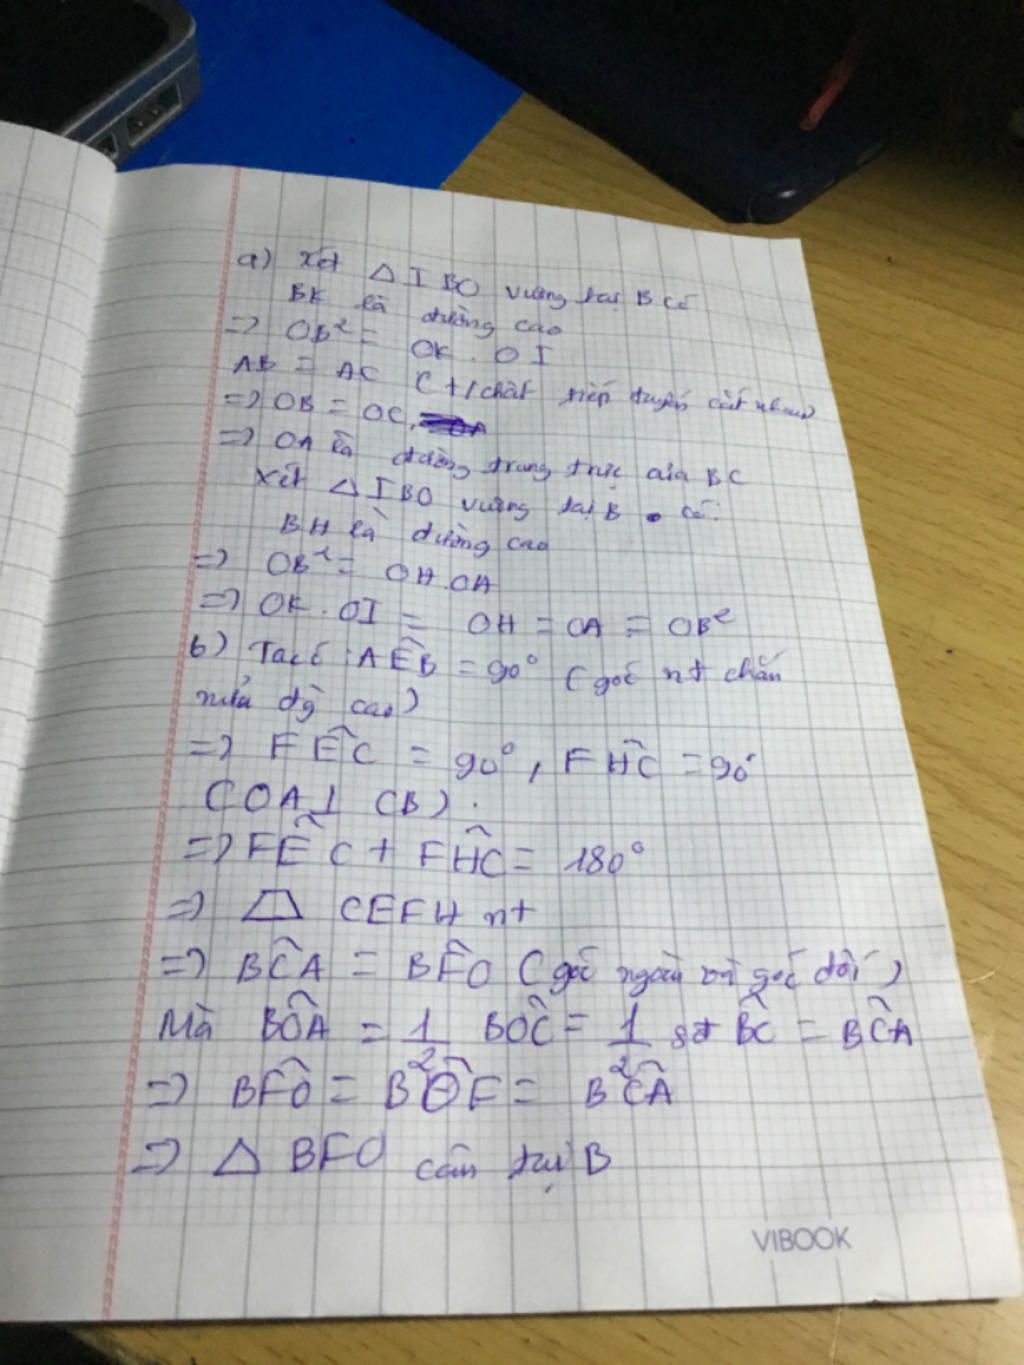 a) Xét △ IBO vuông tại B có
BK là đường cao
=> OB² = OK . OI
AB = AC (t/chất tiếp tuyến cắt nhau)
=> OB = OC,
=> OA là đường trung trực của BC
Xét △ IBO vuông tại B có:
BH là đường cao
=> OB² = OH.OA
=> OK . OI = OH = OA = OB²
b) Ta có : AÊB = 90° (góc nt chắn
nửa đg cao)
=> FÊC = 90°, FĤC = 90°
(OA⊥ CB).
=> FÊC + FĤC = 180°
=> ⏢ CEFH nt
=> BĈA = BF̂O (góc ngoài và góc đối)
Mà BÔA = 1/2 BOĈ = 1/2 sđ BC = BĈA
=> BFÔ = BÔF = BĈA
=> △ BFO cân tại B
VIBOOK